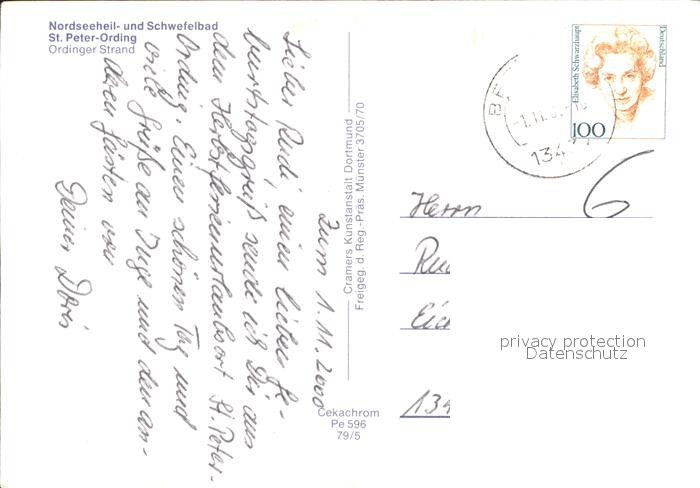 Nordseeheil- und Schwefelbad
St. Peter-Ording
Ordinger Strand
Zum 1.11.2000
Lieber Rudi, einen lieben Ge-
burtstagsgruß sende ich Dir aus
dem Herbstferienurlaubsort St. Peter-
Ording. Einen schönen Tag und
viele Grüße an Inge und den an-
deren Gästen von
Deiner Doris
Cramers Kunstanstalt Dortmund
Freigeg. d. Reg.-Präs. Münster 3705/70
Cekachrom
Pe 596
79/5
Elisabeth Schwarzhaupt
Deutschland
100
134
6
Herrn
Ru
Eic
134
privacy protection
Datenschutz